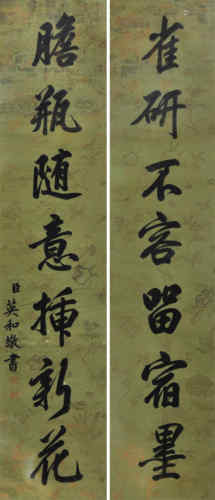 雀研不容留宿墨
膽瓶随意揷新花
臣英和敬書